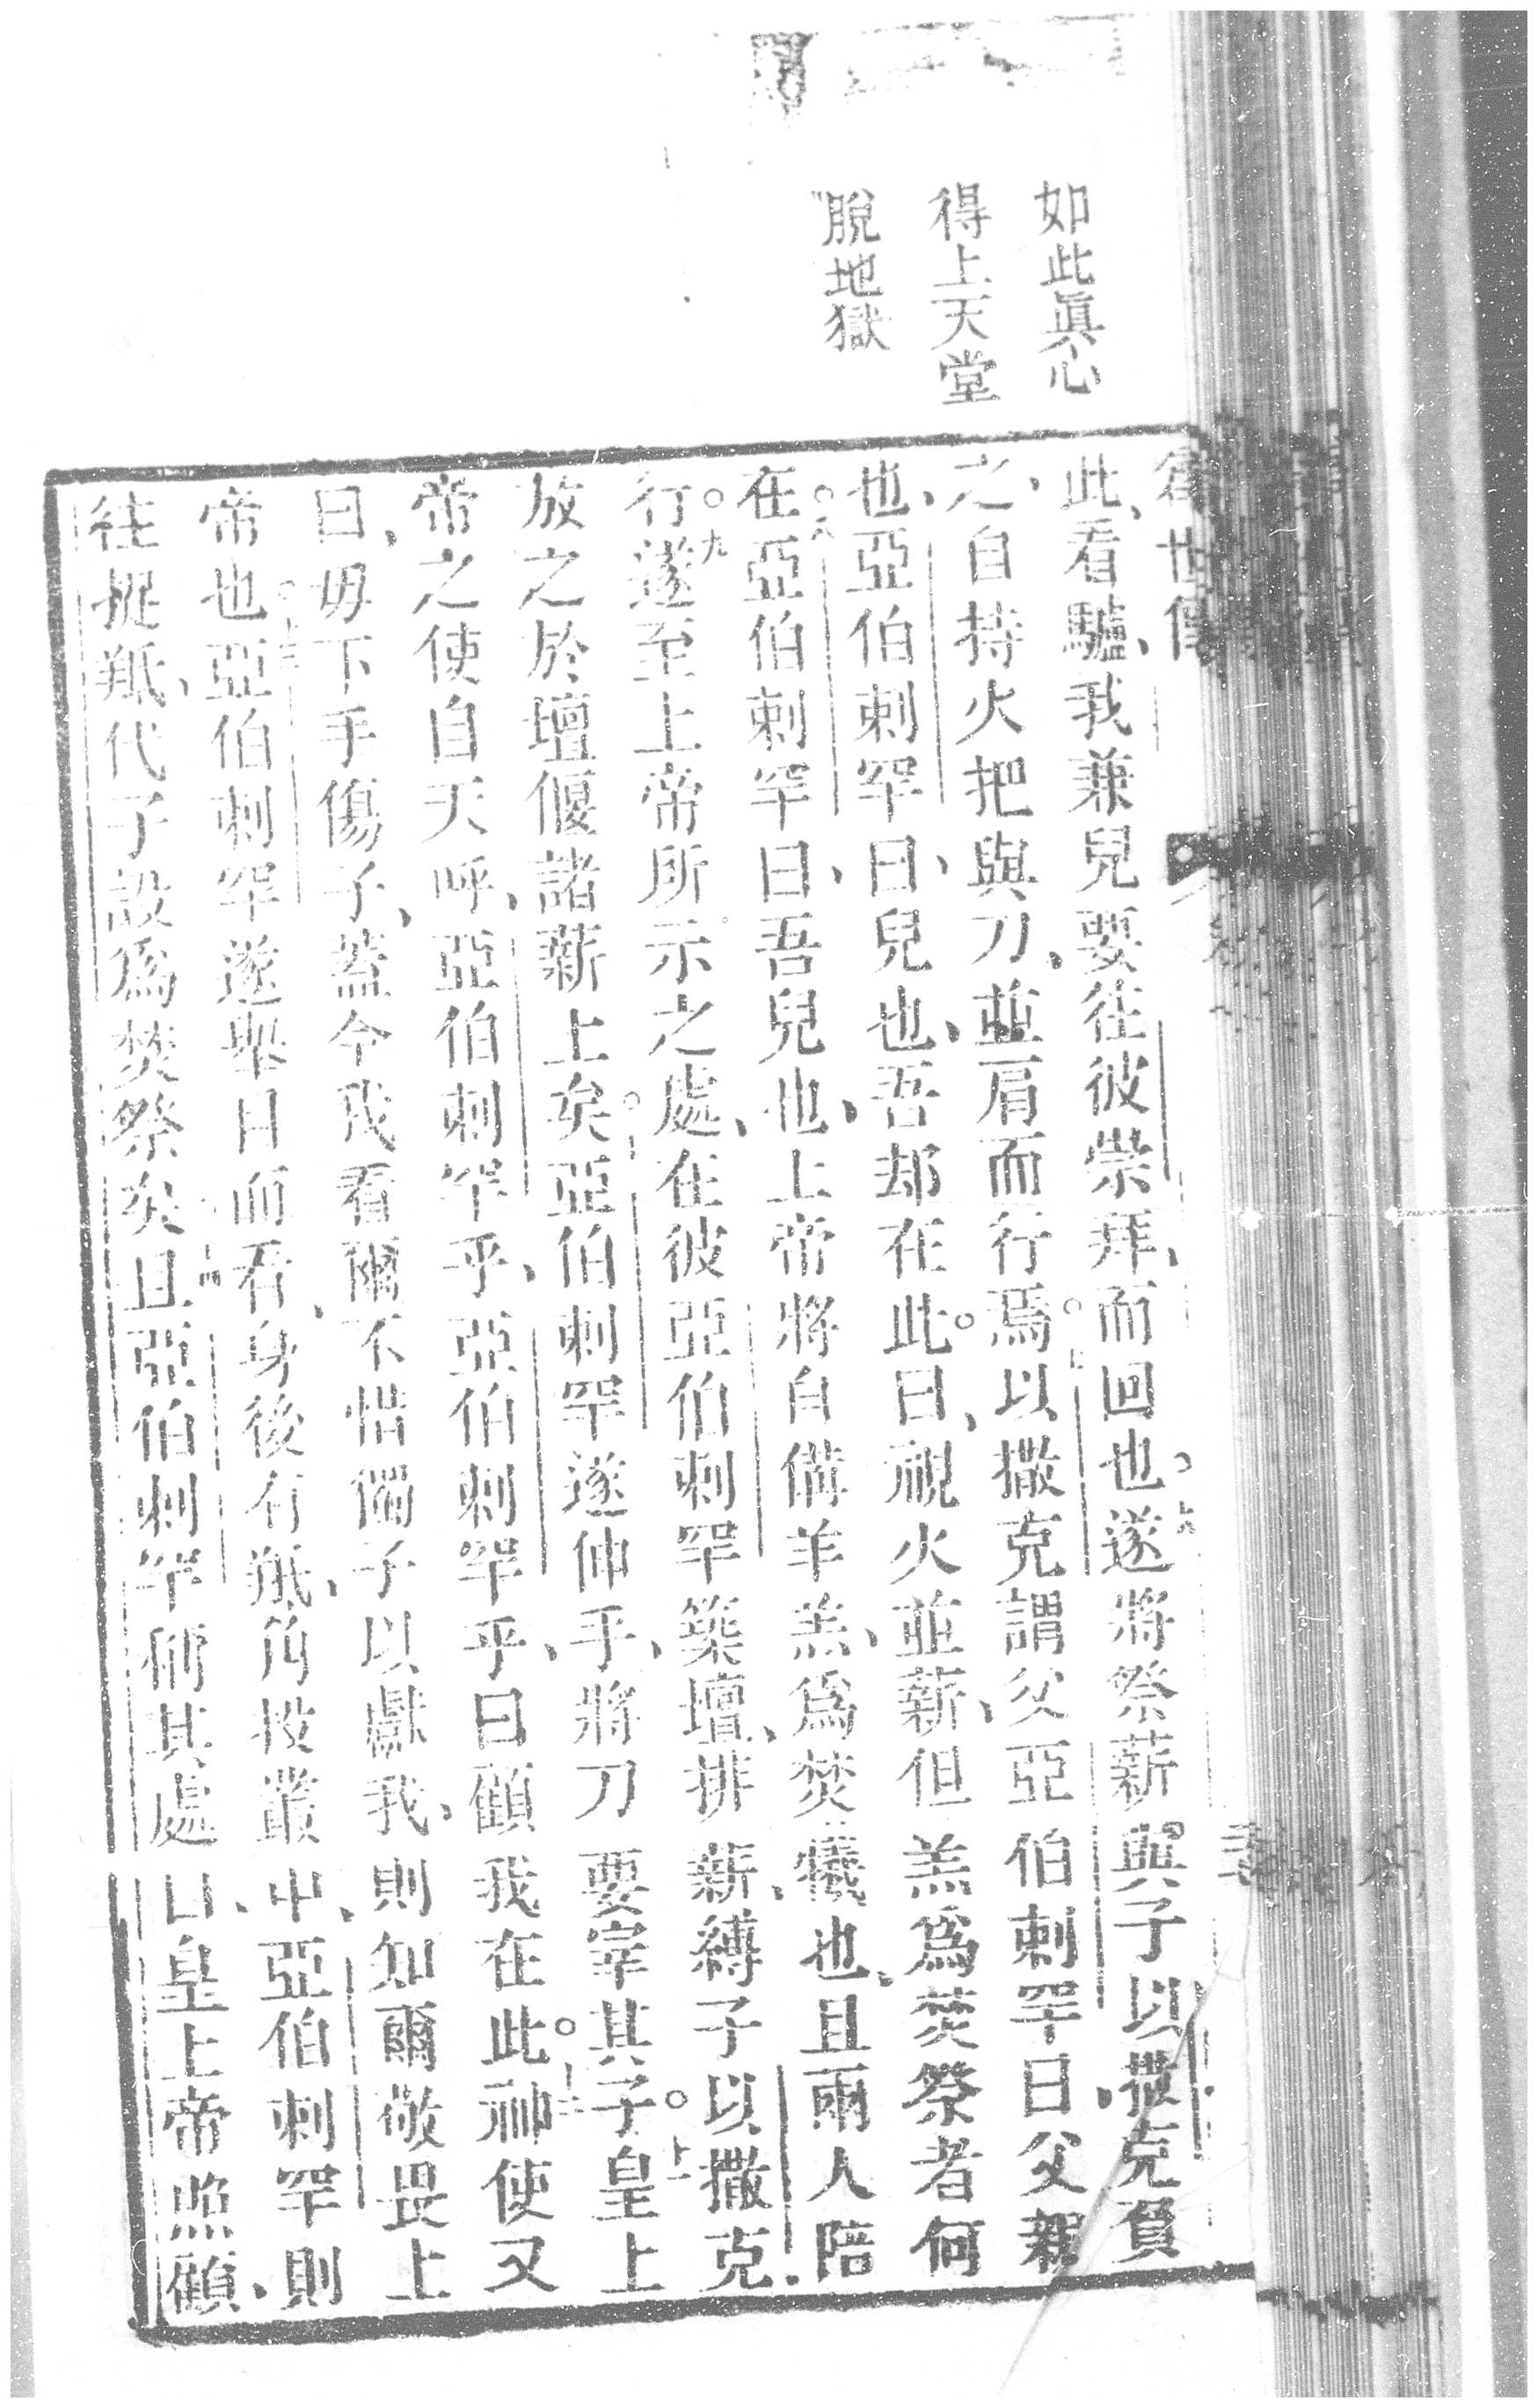 如此眞心
得上天堂
脫地獄
此、看驢、我兼兒要往彼崇拜、而回也。六遂將祭薪與子以撒克負
之、自持火把與刀、並肩而行焉。七以撒克謂父亞伯剌罕曰、父親
也、亞伯剌罕曰、兒也、吾却在此。曰、視火並薪、但羔爲焚祭者何
在。八亞伯剌罕曰、吾兒也、上帝將自備羊羔、爲焚犧也、且兩人陪
行。九遂至上帝所示之處、在彼亞伯剌罕築壇、排薪、縛子以撒克、
放之於壇偃諸薪上矣。十亞伯剌罕遂伸手、將刀要宰其子。十一皇上
帝之使自天呼、亞伯剌罕乎、亞伯剌罕乎、曰顧我在此。十二神使又
曰、毋下手傷子、蓋今我看爾不惜獨子以獻我、則知爾敬畏上
帝也。十三亞伯剌罕遂舉目而看、身後有羝、角投叢中、亞伯剌罕則
往捉羝、代子設爲焚祭矣。十四且亞伯剌罕稱其處曰、皇上帝照顧、